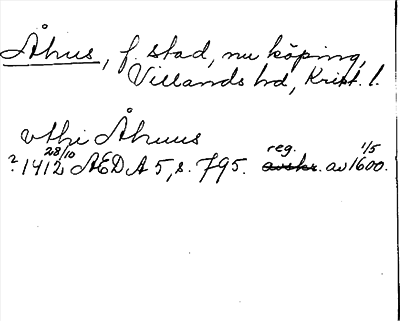 Åhus, f. stad, nu köping,
Villands hd, Krist. l.
vthi Åhuus
? 1412 28/10 ÆDA 5, s. 795. reg. avskr. av 1600. 1/5